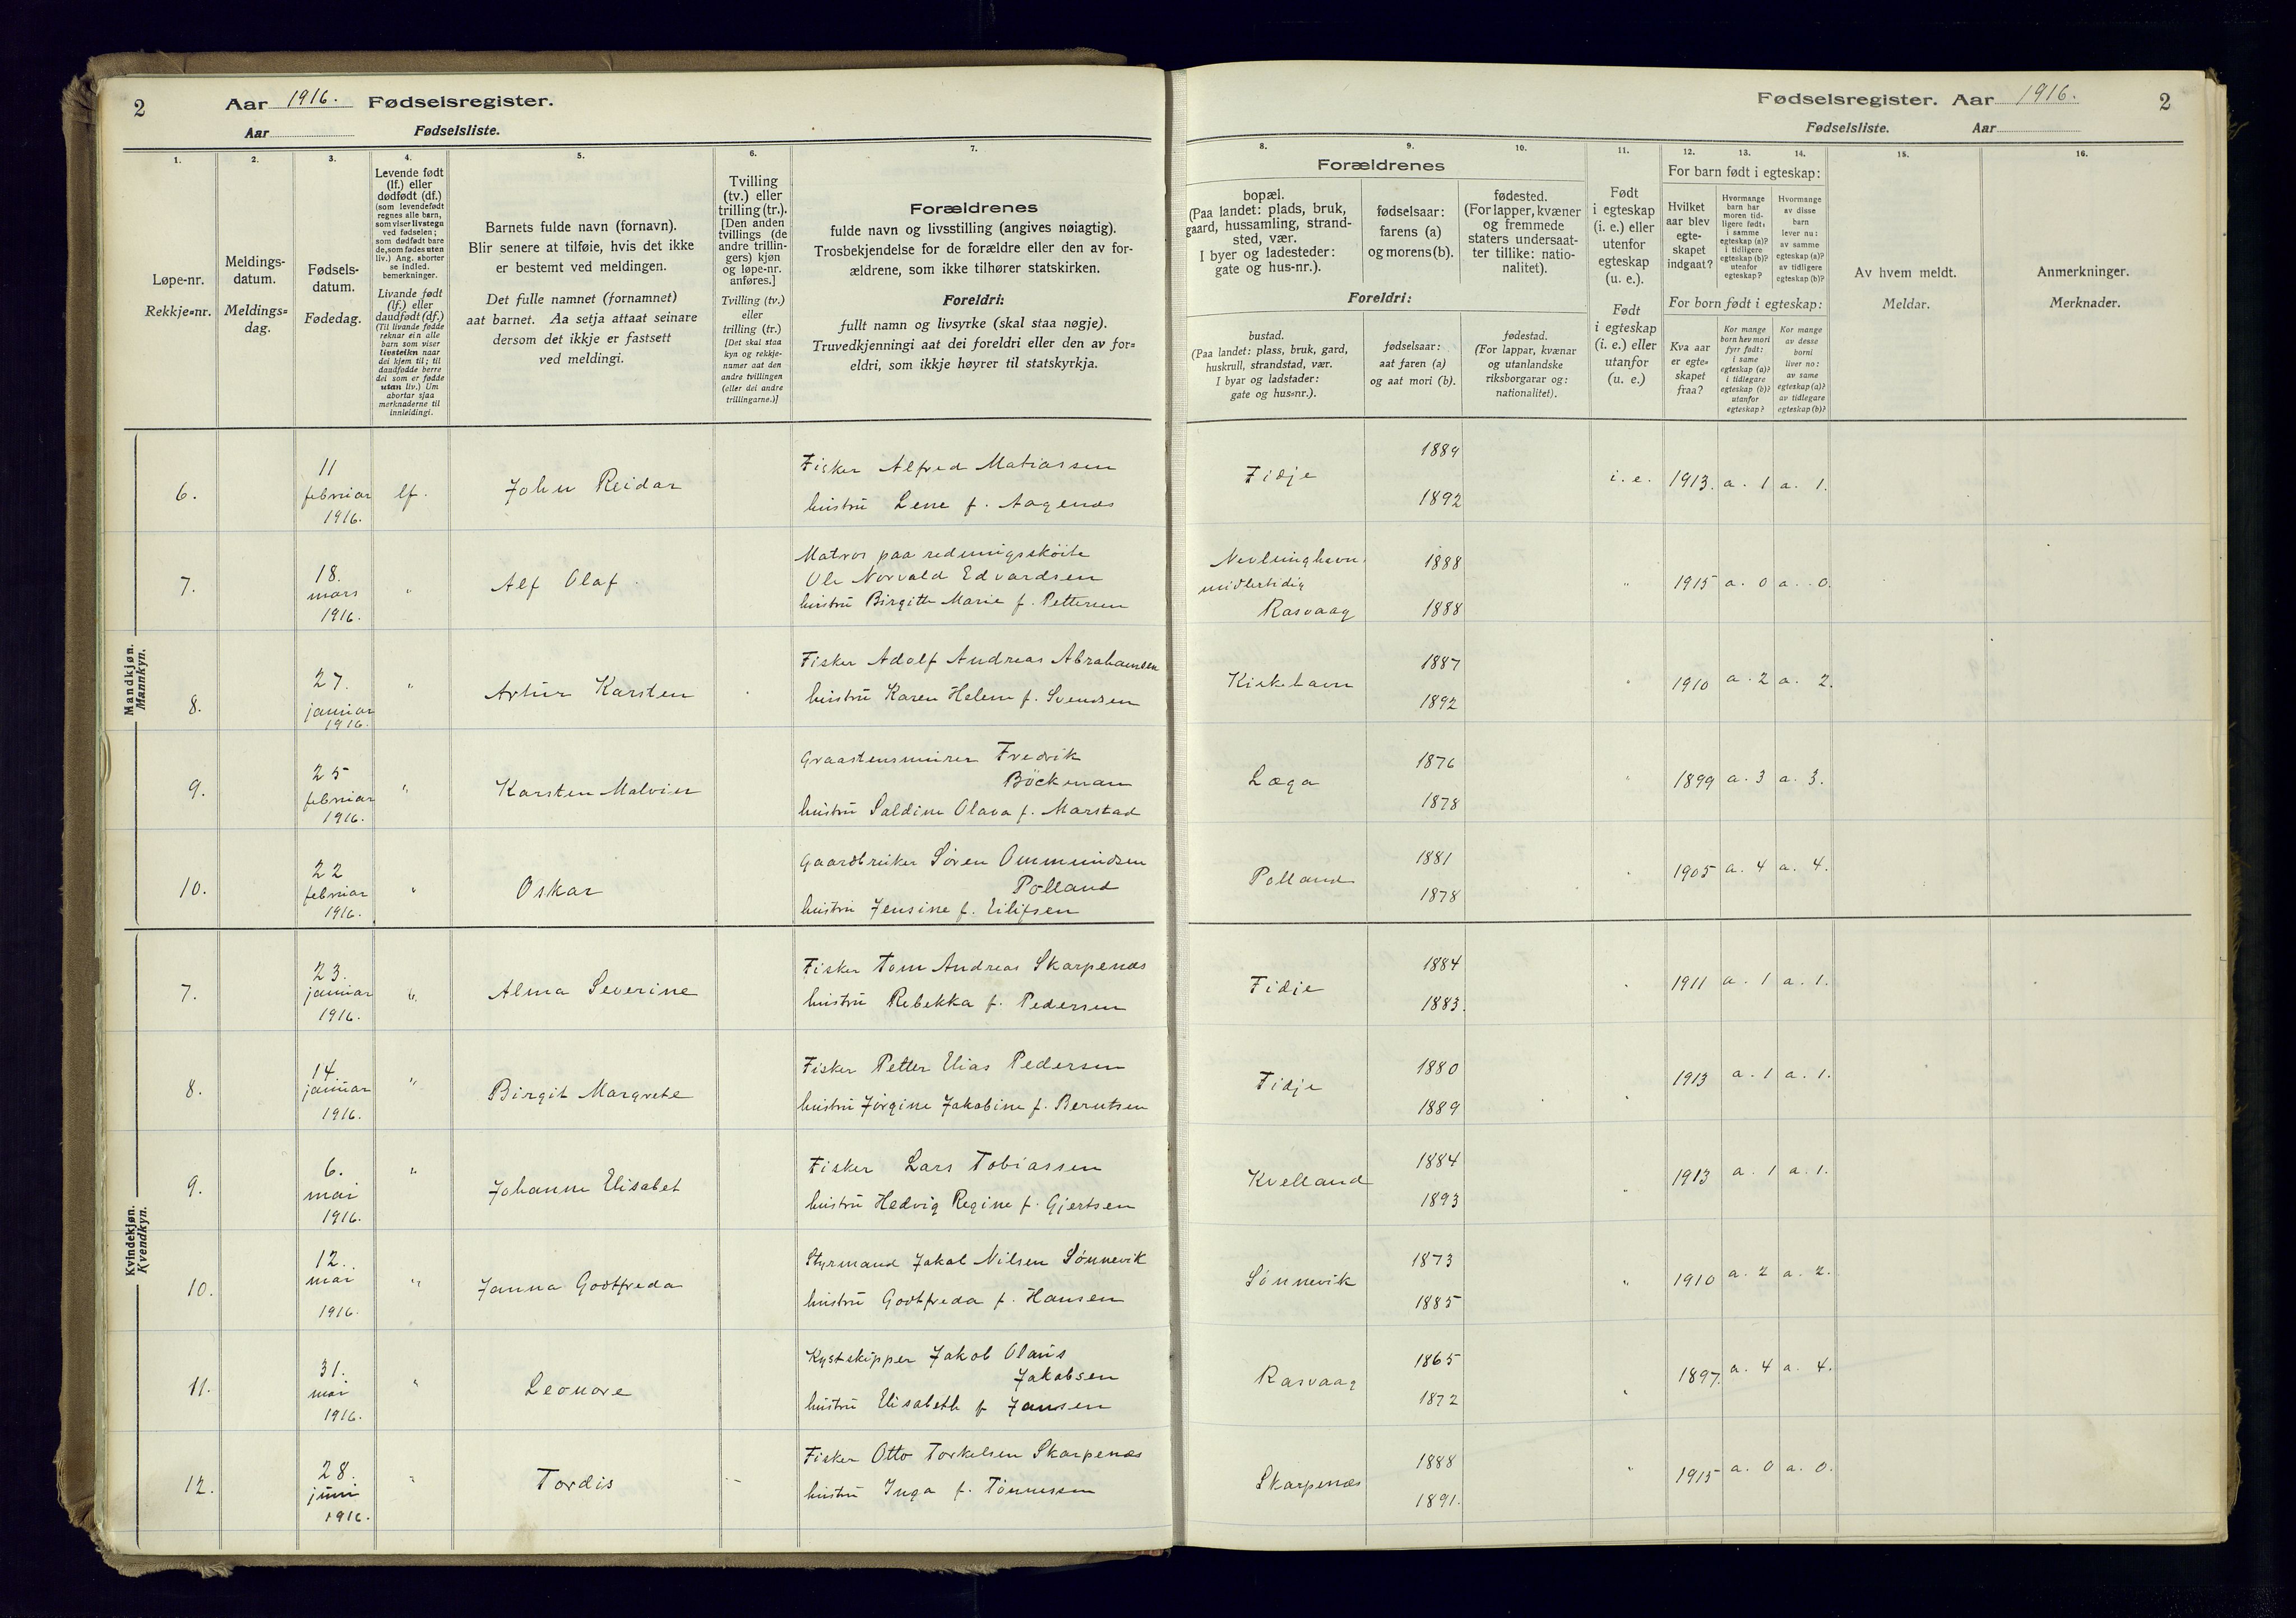 2 Aar 1916. Fødselsregister.
Aar Fødselsliste.
Fødselsregister. Aar 1916. 2
Fødselsliste. Aar
1.
Løpe-nr.
Rekkje=nr.
2.
Meldings-
datum.
Meldings=
dag.
3.
Fødsels-
datum.
Fødedag.
4.
Levende født
(lf.) eller
dødfødt (df.)
(som levendefødt
regnes alle barn,
som viser livstegn
ved fødselen;
som dødfødt bare
de, som fødes uten
liv.) Ang. aborter
se indled.
bemerkninger.
Livande født
(lf.) eller
daudfødt (df.)
(Til livande fødde
reknar ein alle
barn som viser
livsteikn naar
dei kjem til; til
daudfødde berre
dei som er fødde
utan liv.) Um
abortar sjaa
merknaderne til
innleidingi.
5.
Barnets fulde navn (fornavn).
Blir senere at tilføie, hvis det ikke
er bestemt ved meldingen.
Det fulle namnet (fornamnet)
aat barnet. Aa setja attaat seinare
dersom det ikkje er fastsett
ved meldingi.
6.
Tvilling
(tv.) eller
trilling (tr.).
[Den anden
tvillings (de
andre trillin-
gers) kjøn
og løpe-nr.
anføres.]
Tvilling (tv.)
eller
trilling (tr.)
[Det skal staa
kyn og rekkje-
numer aat den
andre tvillingen
(eller dei andre
trillingarne.)]
7.
Forældrenes
fulde navn og livsstilling (angives nøiagtig).
Trosbekjendelse for de forældre eller den av for-
ældrene, som ikke tilhører statskirken.
Foreldri:
fullt namn og livsyrke (skal staa nøgje).
Truvedkjenningi aat dei foreldri eller den av for=
eldri, som ikkje høyrer til statskyrkja.
Forældrenes
8.
bopæl.
(Paa landet: plads, bruk,
gaard, hussamling, strand-
sted, vær.
I byer og ladesteder:
gate og hus-nr.).
9.
fødselsaar:
farens (a)
og morens (b).
10.
fødested.
(For lapper, kvæner
og fremmede
staters undersaat-
ter tillike: natio-
nalitet).
Foreldri:
bustad.
(Paa landet: plass, bruk, gard,
huskrull, strandstad, vær.
I byar og ladstader:
gate og hus=nr.).
fødselsaar:
aat faren (a)
og aat mori (b).
fødestad.
(For lappar, kvænar
og utanlandske
riksborgarar og:
nationalitet).
11.
Født
i egteskap
(i. e.) eller
utenfor
egteskap
(u. e.).
Født
i egteskap
(i. e.) eller
utanfor
(u. e.)
For barn født i egteskap:
12.
Hvilket
aar blev
egte-
skapet
indgaat?
13.
Hvormange
barn har
moren tid-
ligere født:
i samme
egteskap (a)?
i tidligere
egteskap (b)?
utenfor
egteskap?
14.
Hvormange
av disse
barn
lever nu:
av samme
egteskap (a)?
av tidligere
egteskap (b)?
For born født i egteskap:
Kva aar
er egte=
skapet
fraa?
Kor mange
born hev mori
fyrr født:
i same
egteskap (a)?
i tidlegare
egteskap (b)?
utanfor
egteskap?
Kor mange
av desse
borni
liver no:
av same
egteskap (a)?
av tidlegare
egteskap (b)?
15.
Av hvem meldt.
Meldar.
16.
Anmerkninger.
Merknader.
Mandkjøn.
Mannkyn.
6. 11 februar 1916. lf. John Reidar
Fisker Alfred Matiassen
hustru Lene f. Aagenæs
Fidje 1889 1892 i. e. 1913. a. 1 a. 1.
7. 18. mars 1916. " Alf Olaf.
Matros paa redningsskøite
Ole Norvald Edvardsen
hustru Birgitte Marie f. Pettersen
Nevlunghavn,
midlertidig
Rasvaag
1888 1888 " 1915 a. 0 a. 0.
8. 27. januar 1916. " Artur Karsten
Fisker Adolf Andreas Abrahamsen
hustru Karen Helene f. Svendsen
Kirkehavn 1887 1892 " 1910 a. 2 a. 2.
9. 25 februar 1916. " Karsten Malvin
Graastensmurer Fredrik
Böckman
hustru Saldine Olava f. Marstad
Læga 1876 1878 " 1899 a. 3 a. 3.
10. 22 februar 1916. " Oskar
Gaardbruker Sören Ommundsen
Polland
hustru Jensine f. Eilifsen
Polland 1881 1878 " 1905 a. 4 a. 4.
Kvindekjøn.
Kvendkyn.
7. 23. januar 1916. " Alma Severine
Fisker Tom Andreas Skarpenæs
hustru Rebekka f. Pedersen
Fidje 1884 1883. " 1911 a. 1 a. 1.
8. 14. januar 1916. " Birgit Margrete
Fisker Petter Elias Pedersen
hustru Jörgine Jakobine f. Berntsen
Fidje 1880 1889 " 1913 a. 1 a. 1.
9. 6. mai 1916. " Johanne Elisabet
Fisker Lars Tobiassen
hustru Hedvig Regine f. Gjertsen
Kvelland 1884 1893 " 1913 a. 1 a. 1.
10. 12. mai 1916. " Janna Godtfreda
Styrmand Jakob Nilsen Sönnevik
hustru Godtfreda f. Hansen
Sönnevik 1873 1885 " 1910 a. 2 a. 2.
11. 31. mai 1916. " Leonore
Kystskipper Jakob Olaus
Jakobsen
hustru Elisabeth f Jansen
Rasvaag 1865 1872 " 1897. a. 4 a. 4.
12. 28. juni 1916. " Tordis
Fisker Otto Torkelsen Skarpenæs
hustru Inga f. Tönnessen
Skarpenæs 1888 1891. " 1915 a. 0 a. 0.